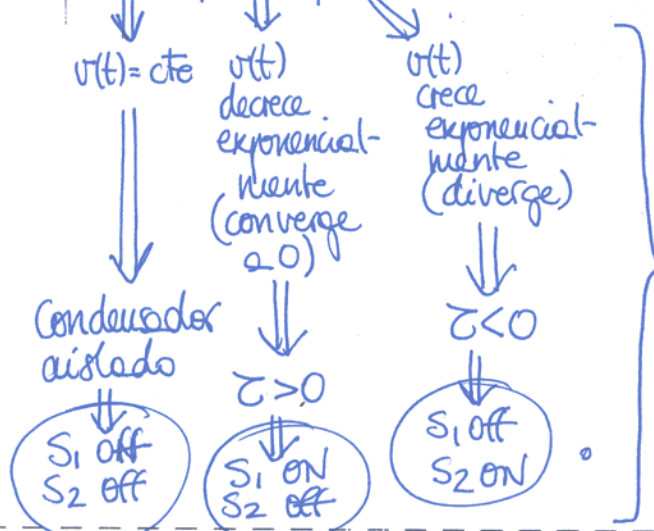 v(t) = cte
Condensador
aislado
S1 Off
S2 Off
v(t)
decrece
exponencial-
mente
(converge
a 0)
τ>0
S1 ON
S2 Off
v(t)
crece
exponencial-
mente
(diverge)
τ<0
S1 Off
S2 ON